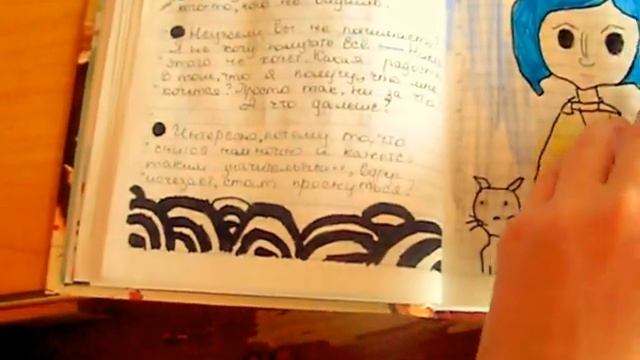 просто, кого не видишь.
Неужели Вы не понимаете?
Я не хочу получать всё. Никто
этого не хочет. Какая радость
в том, что я получу, что мне
хочется? Просто так, ни за что
А что дальше?
Интересно, потому то, что
снится нам ночью и кажется
таким значительным, вдруг
исчезает, стоит проснуться?